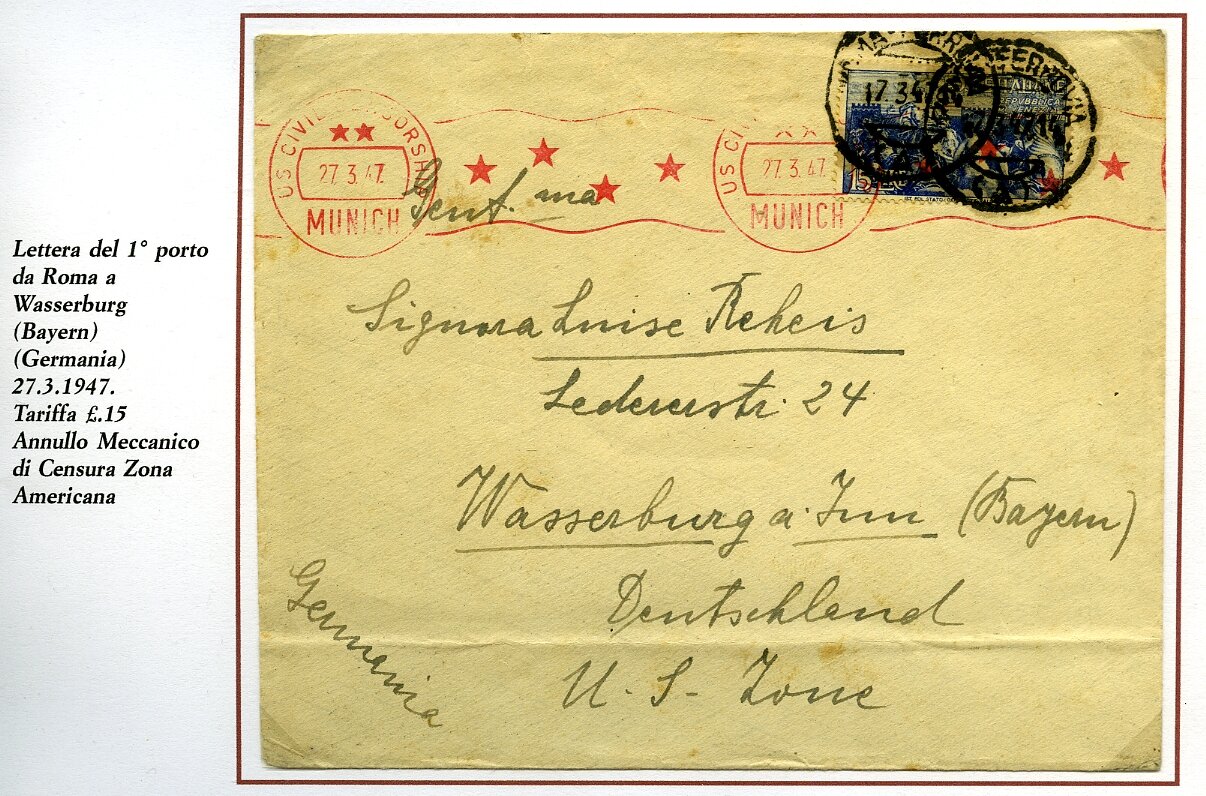 Lettera del 1° porto
da Roma a
Wasserburg
(Bayern)
(Germania)
27.3.1947.
Tariffa £.15
Annullo Meccanico
di Censura Zona
Americana
US CIVIL CENSORSHIP
27.3.47.
MUNICH
US CIVIL
27.3.47.
MUNICH
FERROVIA
REPUBBLICA
15
Gent.ma
Signora Luise Reheis
Ledererstr. 24
Wasserburg a. Inn (Bayern)
Deutschland
U. S. Zone
Germania